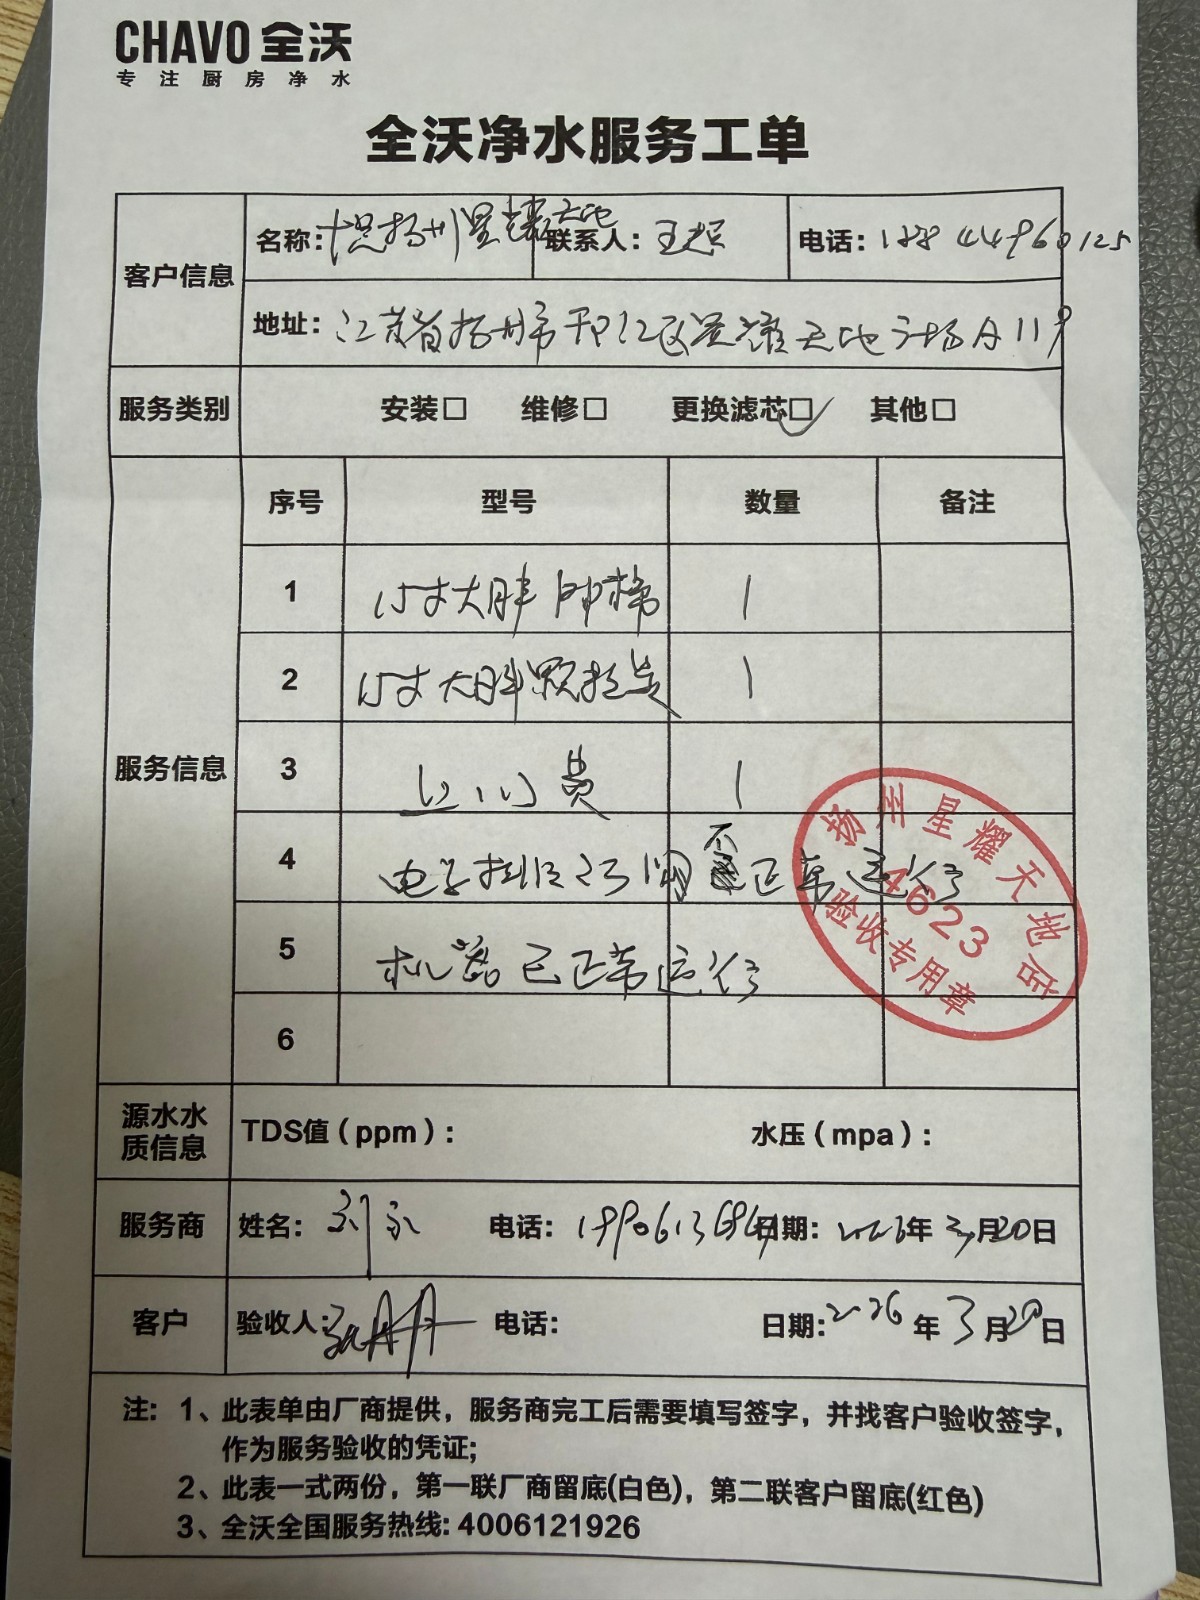 CHAVO 全沃
专注厨房净水
全沃净水服务工单
客户信息
名称: 扬州星耀天地
联系人: 王
电话:
地址: 江苏省扬州市邗江区星耀天地广场A119
服务类别
安装□ 维修□ 更换滤芯□✓ 其他□
服务信息
序号 型号 数量 备注
1 15寸大胖 PP棉 1
2 15寸大胖颗粒炭 1
3 上门费 1
4 不正常运行
5 机器已正常运行
6
扬州星耀天地店
4623
验收专用章
源水水质信息
TDS值(ppm):
水压(mpa):
服务商
姓名: 刘永
电话:
日期: 2026年3月20日
客户
验收人:
电话:
日期: 2026年3月20日
注: 1、此表单由厂商提供，服务商完工后需要填写签字，并找客户验收签字，
作为服务验收的凭证;
2、此表一式两份，第一联厂商留底(白色)，第二联客户留底(红色)
3、全沃全国服务热线: 4006121926